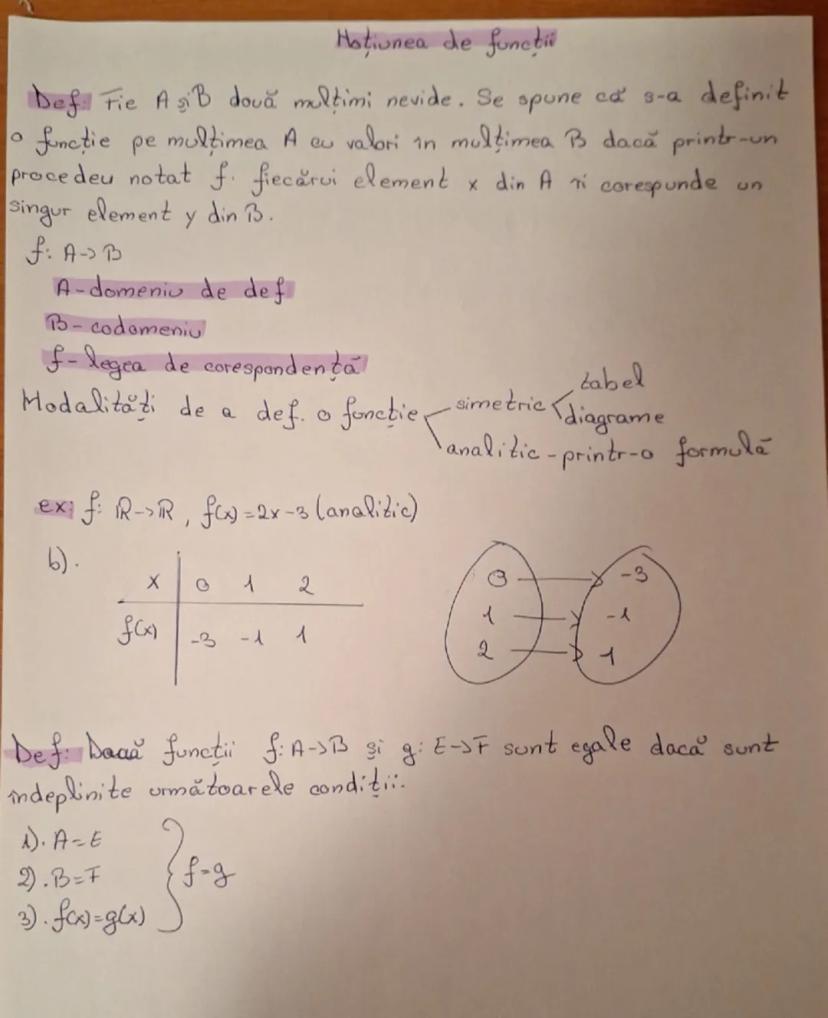 Noțiunea de funcții
Def: Fie A și B două mulțimi nevide. Se spune că s-a definit
o funcție pe mulțimea A cu valori în mulțimea B dacă printr-un
procedeu notat f. fiecărui element x din A îi corespunde un
singur element y din B.
f: A->B
A-domeniu de def
B-codomeniu
f-legea de corespondență
tabel
Modalități de a def. o funcție simetric diagrame
analitic-printr-o formulă
ex: f: ℝ->ℝ, f(x)=2x-3 (analitic)
b).
x 0 1 2
f(x) -3 -1 1
0 -> -3
1 -> -1
2 -> 1
Def: Daaă funcții f: A->B și g: E->F sunt egale dacă sunt
îndeplinite următoarele condiții:
1). A=E
2). B=F } f=g
3). f(x)=g(x)